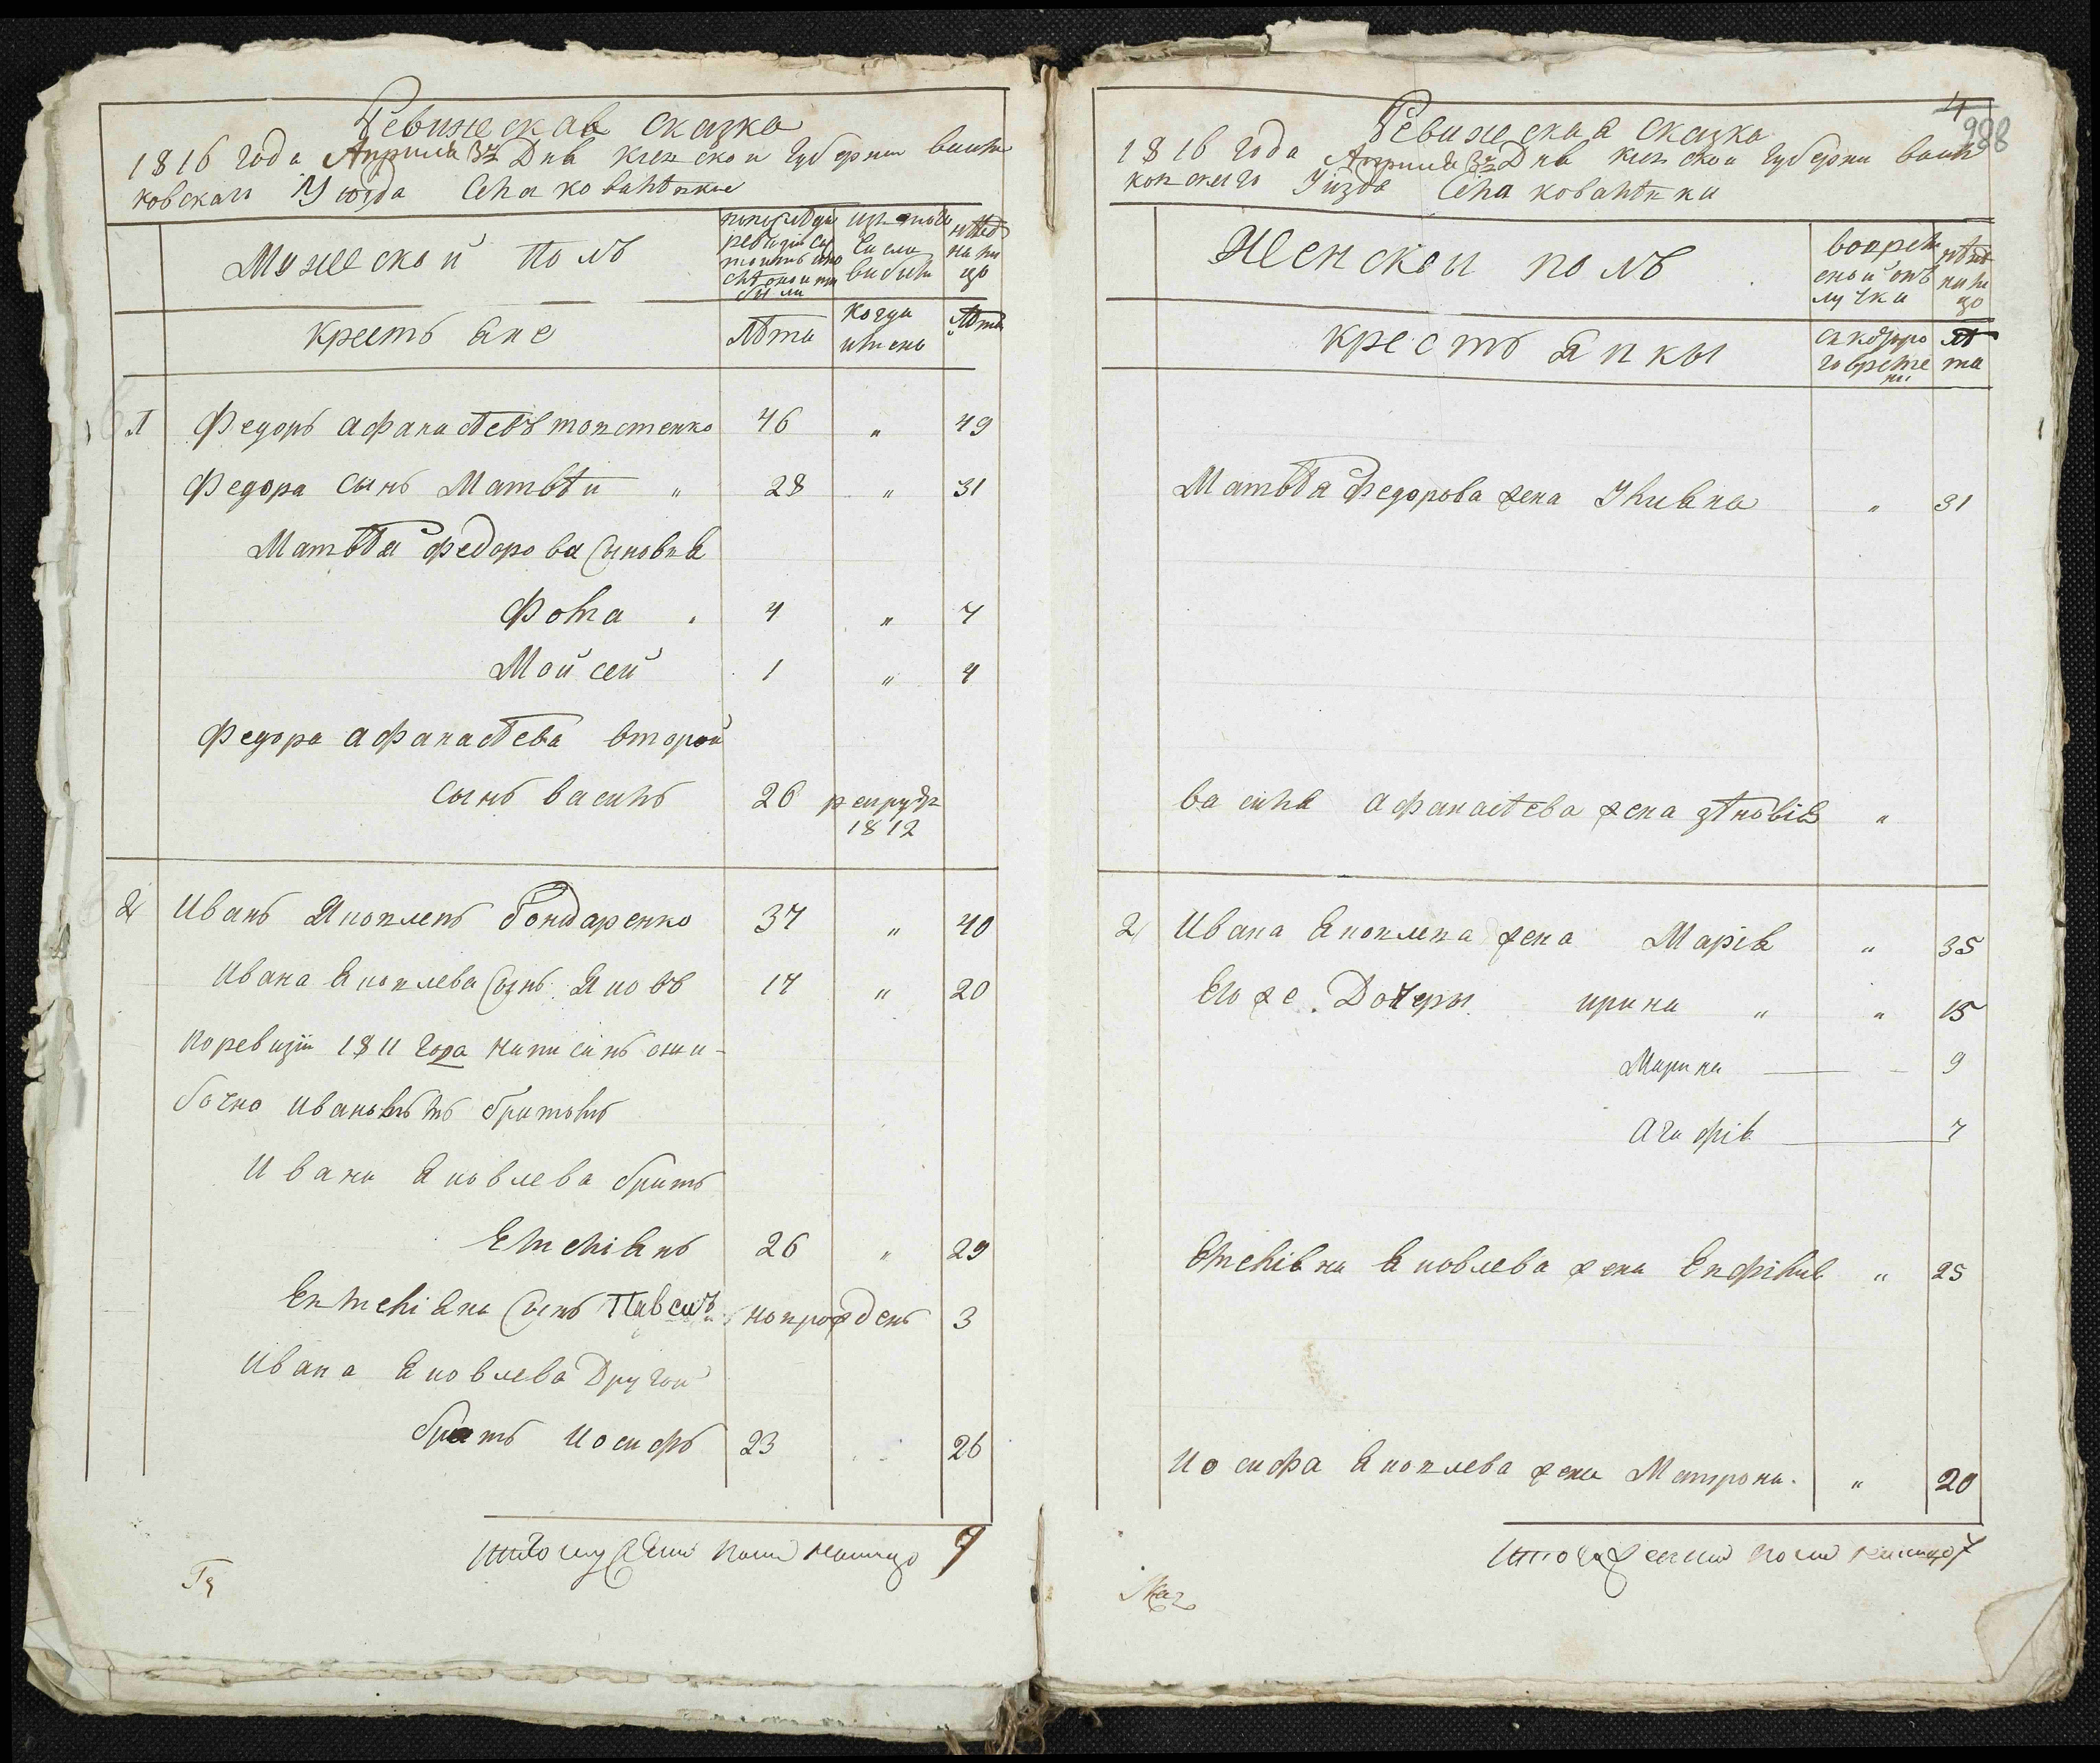 Ревижская сказка
1816 года Априля Дня киевской губернии василь
ковского Уюзда Села ковалѣвки
Мужеской полъ
по последн изъ того нынѣ
ревизіи со числа на ли
вибили цо
были
крестьяне
Лѣта
когда
имено
Лѣта
1 Федоръ Афанасѣевъ товстенко 46 " 49
Федора сынъ Матвѣй " 28 " 31
Матвѣя федорова сыновья
Фома " 4 " 7
Мойсей 1 " 4
Федора афанасѣева второй
сынъ василь 26 рекрут
1812
2 Иванъ Яковлевъ бондаренко 37 " 40
Ивана Яковлева сынъ Яковъ 17 " 20
По ревизіи 1811 года написанъ оши-
бочно ивановымъ братомъ
Ивана Яковлева братъ
Емельянъ 26 " 29
Емельяна сынъ новорожденъ 3
Ивана Яковлева Другой
братъ Иосифъ 23 26
Итого мужеска пола налицо 7
4
988
Ревижская сказка
1816 года Априля Дня киевской губерни василь
ковского Уизда Села ковалѣвки
Женской полъ
во времен
ной отъ
лучки
нынѣ
на ли
цо
крестьянки
съ которо
го време
ни
лѣ
та
Матвѣя Федорова жена Улияна " 31
василя афанасѣева жена зѣновія "
2 Ивана Яковлева жена Марія " 35
Его же Дочеры ирина " " 15
Марина — 9
Агафія — 7
Емеліяна Яковлева жена Евфимія " 25
Иосифа Яковлева жена Матрона " 20
Итого женска пола налицо 7